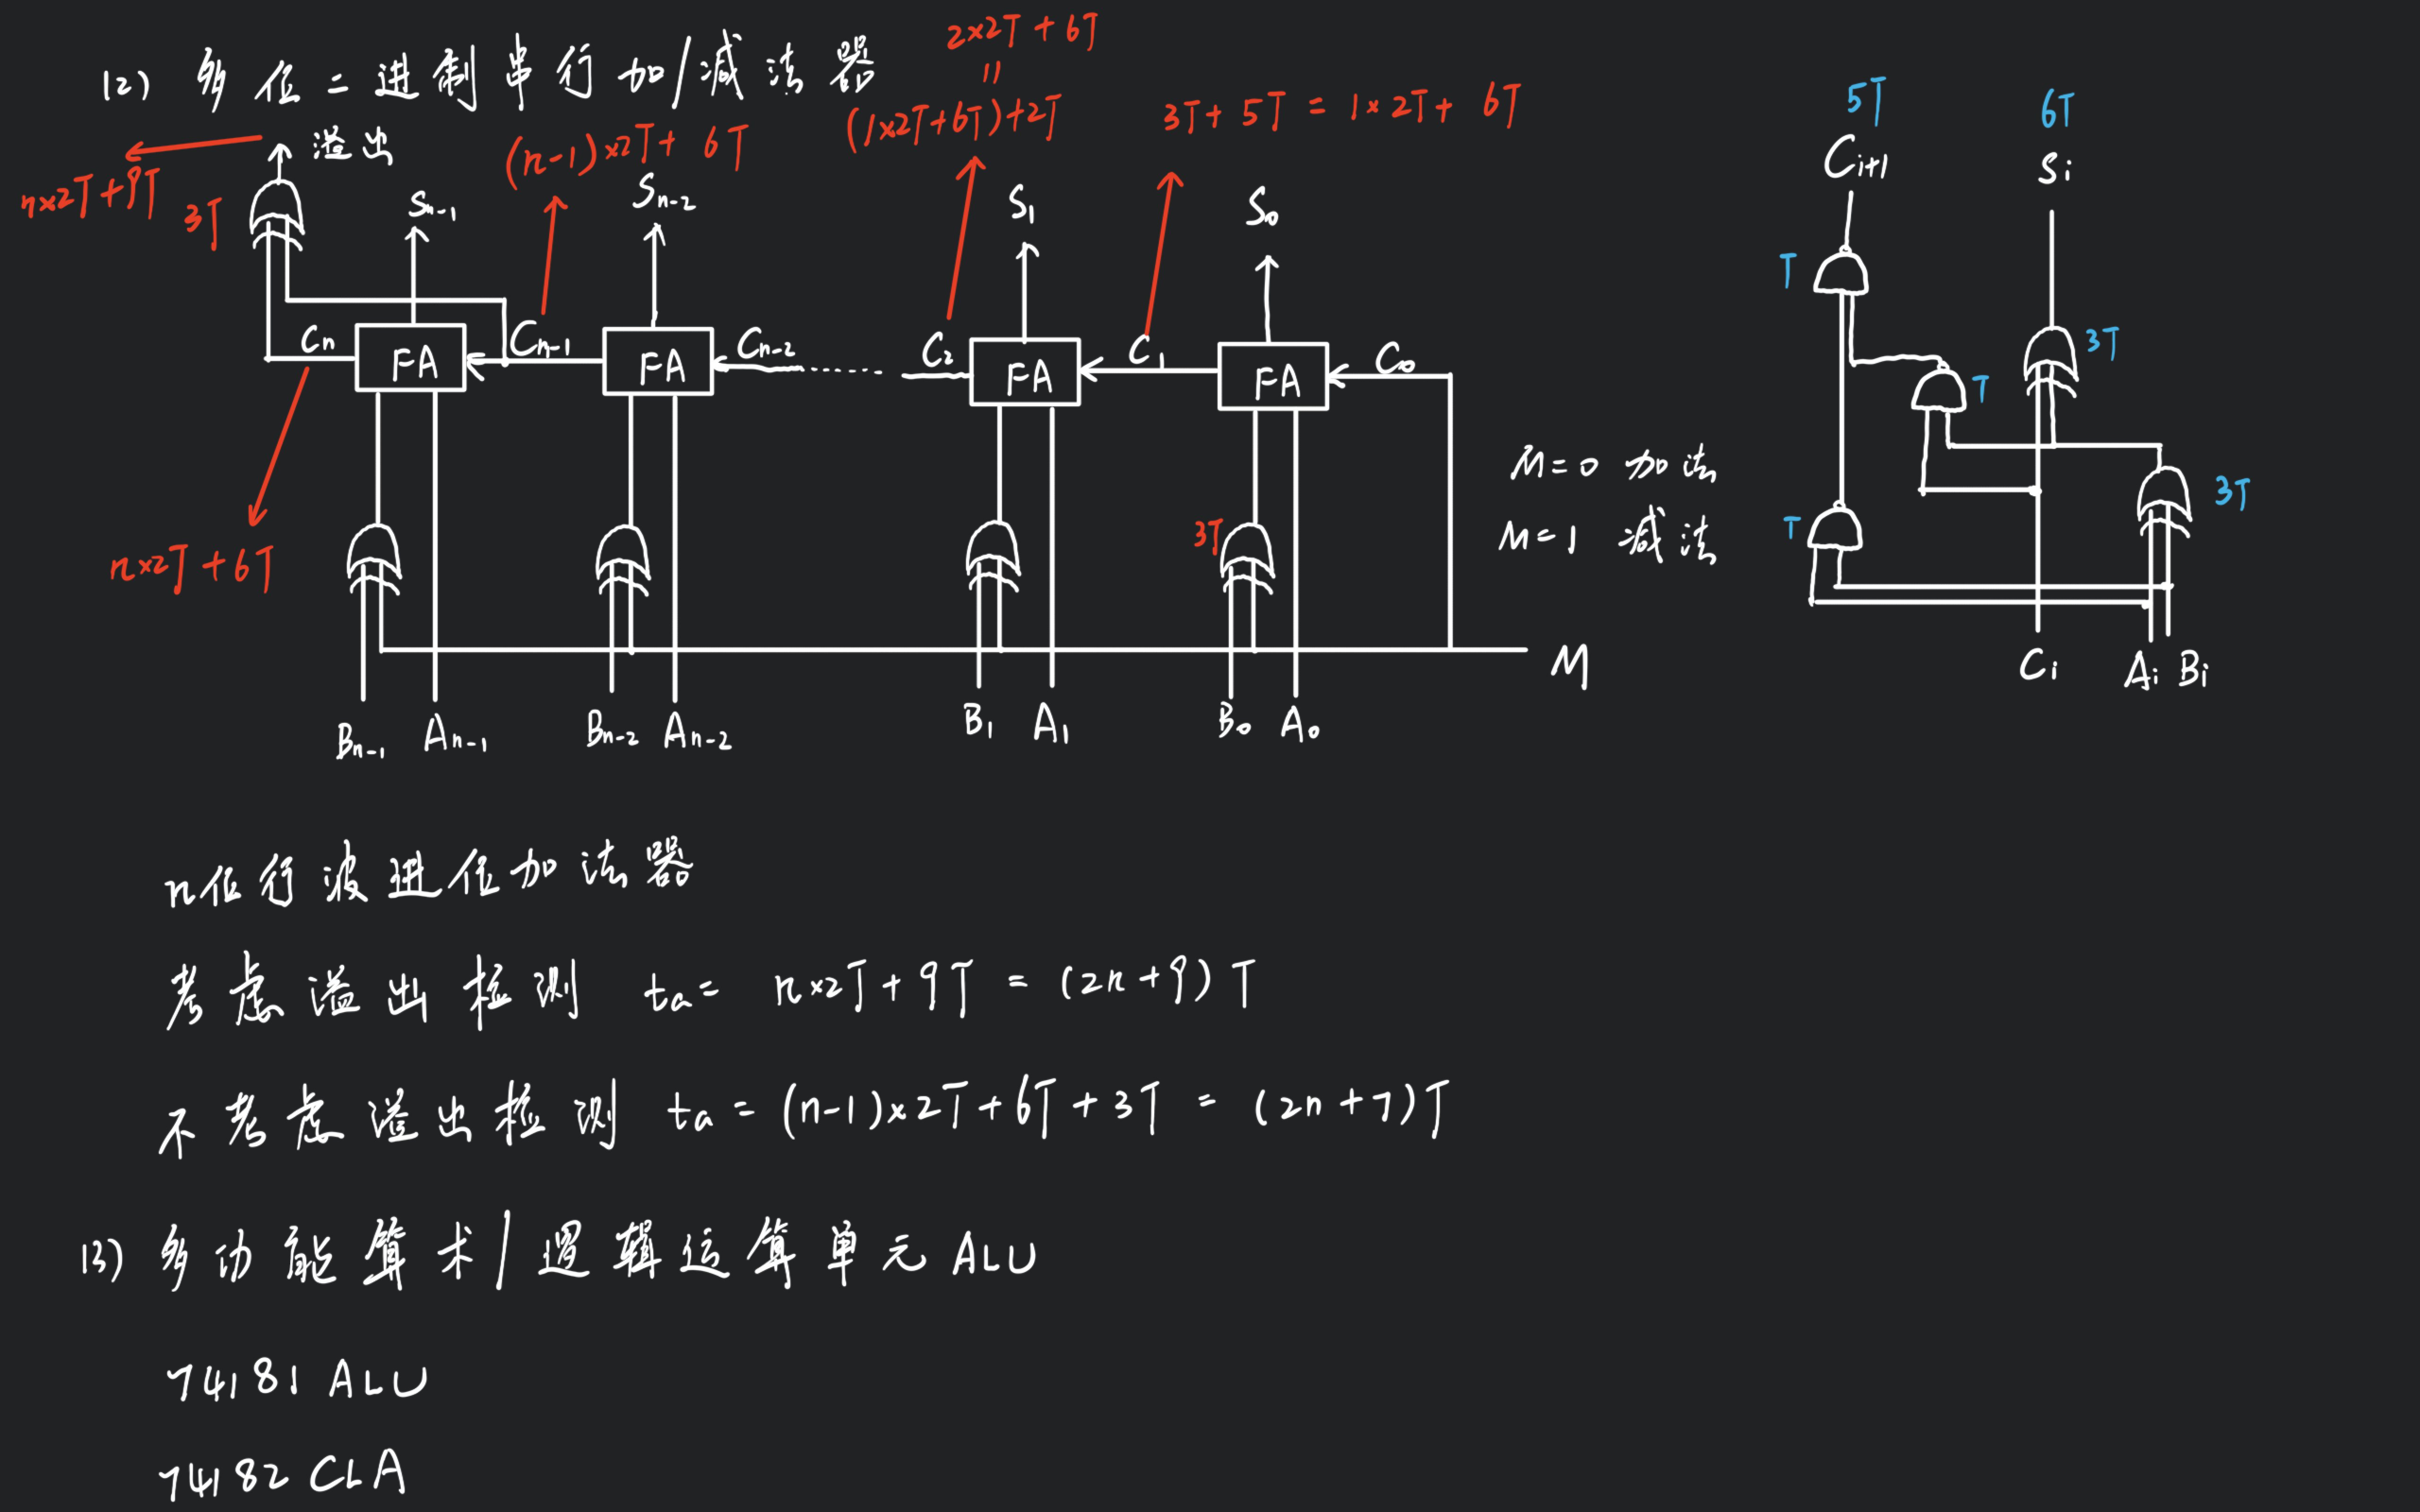 (2) 多位二进制串行加/减法器
2×2T + 6T
=
(1×2T+6T)+2T
3T + 5T = 1×2T + 6T
(n-1)×2T + 6T
溢出
n×2T+9T
3T
Sn-1
Sn-2
S1
S0
Cn
FA
Cn-1
FA
Cn-2
......
C2
FA
C1
FA
C0
n×2T+6T
3T
M=0 加法
M=1 减法
M
Bn-1 An-1
Bn-2 An-2
B1 A1
B0 A0
5T
6T
Ci+1
Si
T
3T
T
3T
T
Ci
Ai Bi
n位行波进位加法器
考虑溢出检测 ta= n×2T+9T = (2n+9)T
不考虑溢出检测 ta = (n-1)×2T+6T+3T = (2n+7)T
(3) 多功能算术/逻辑运算单元ALU
74181 ALU
74182 CLA